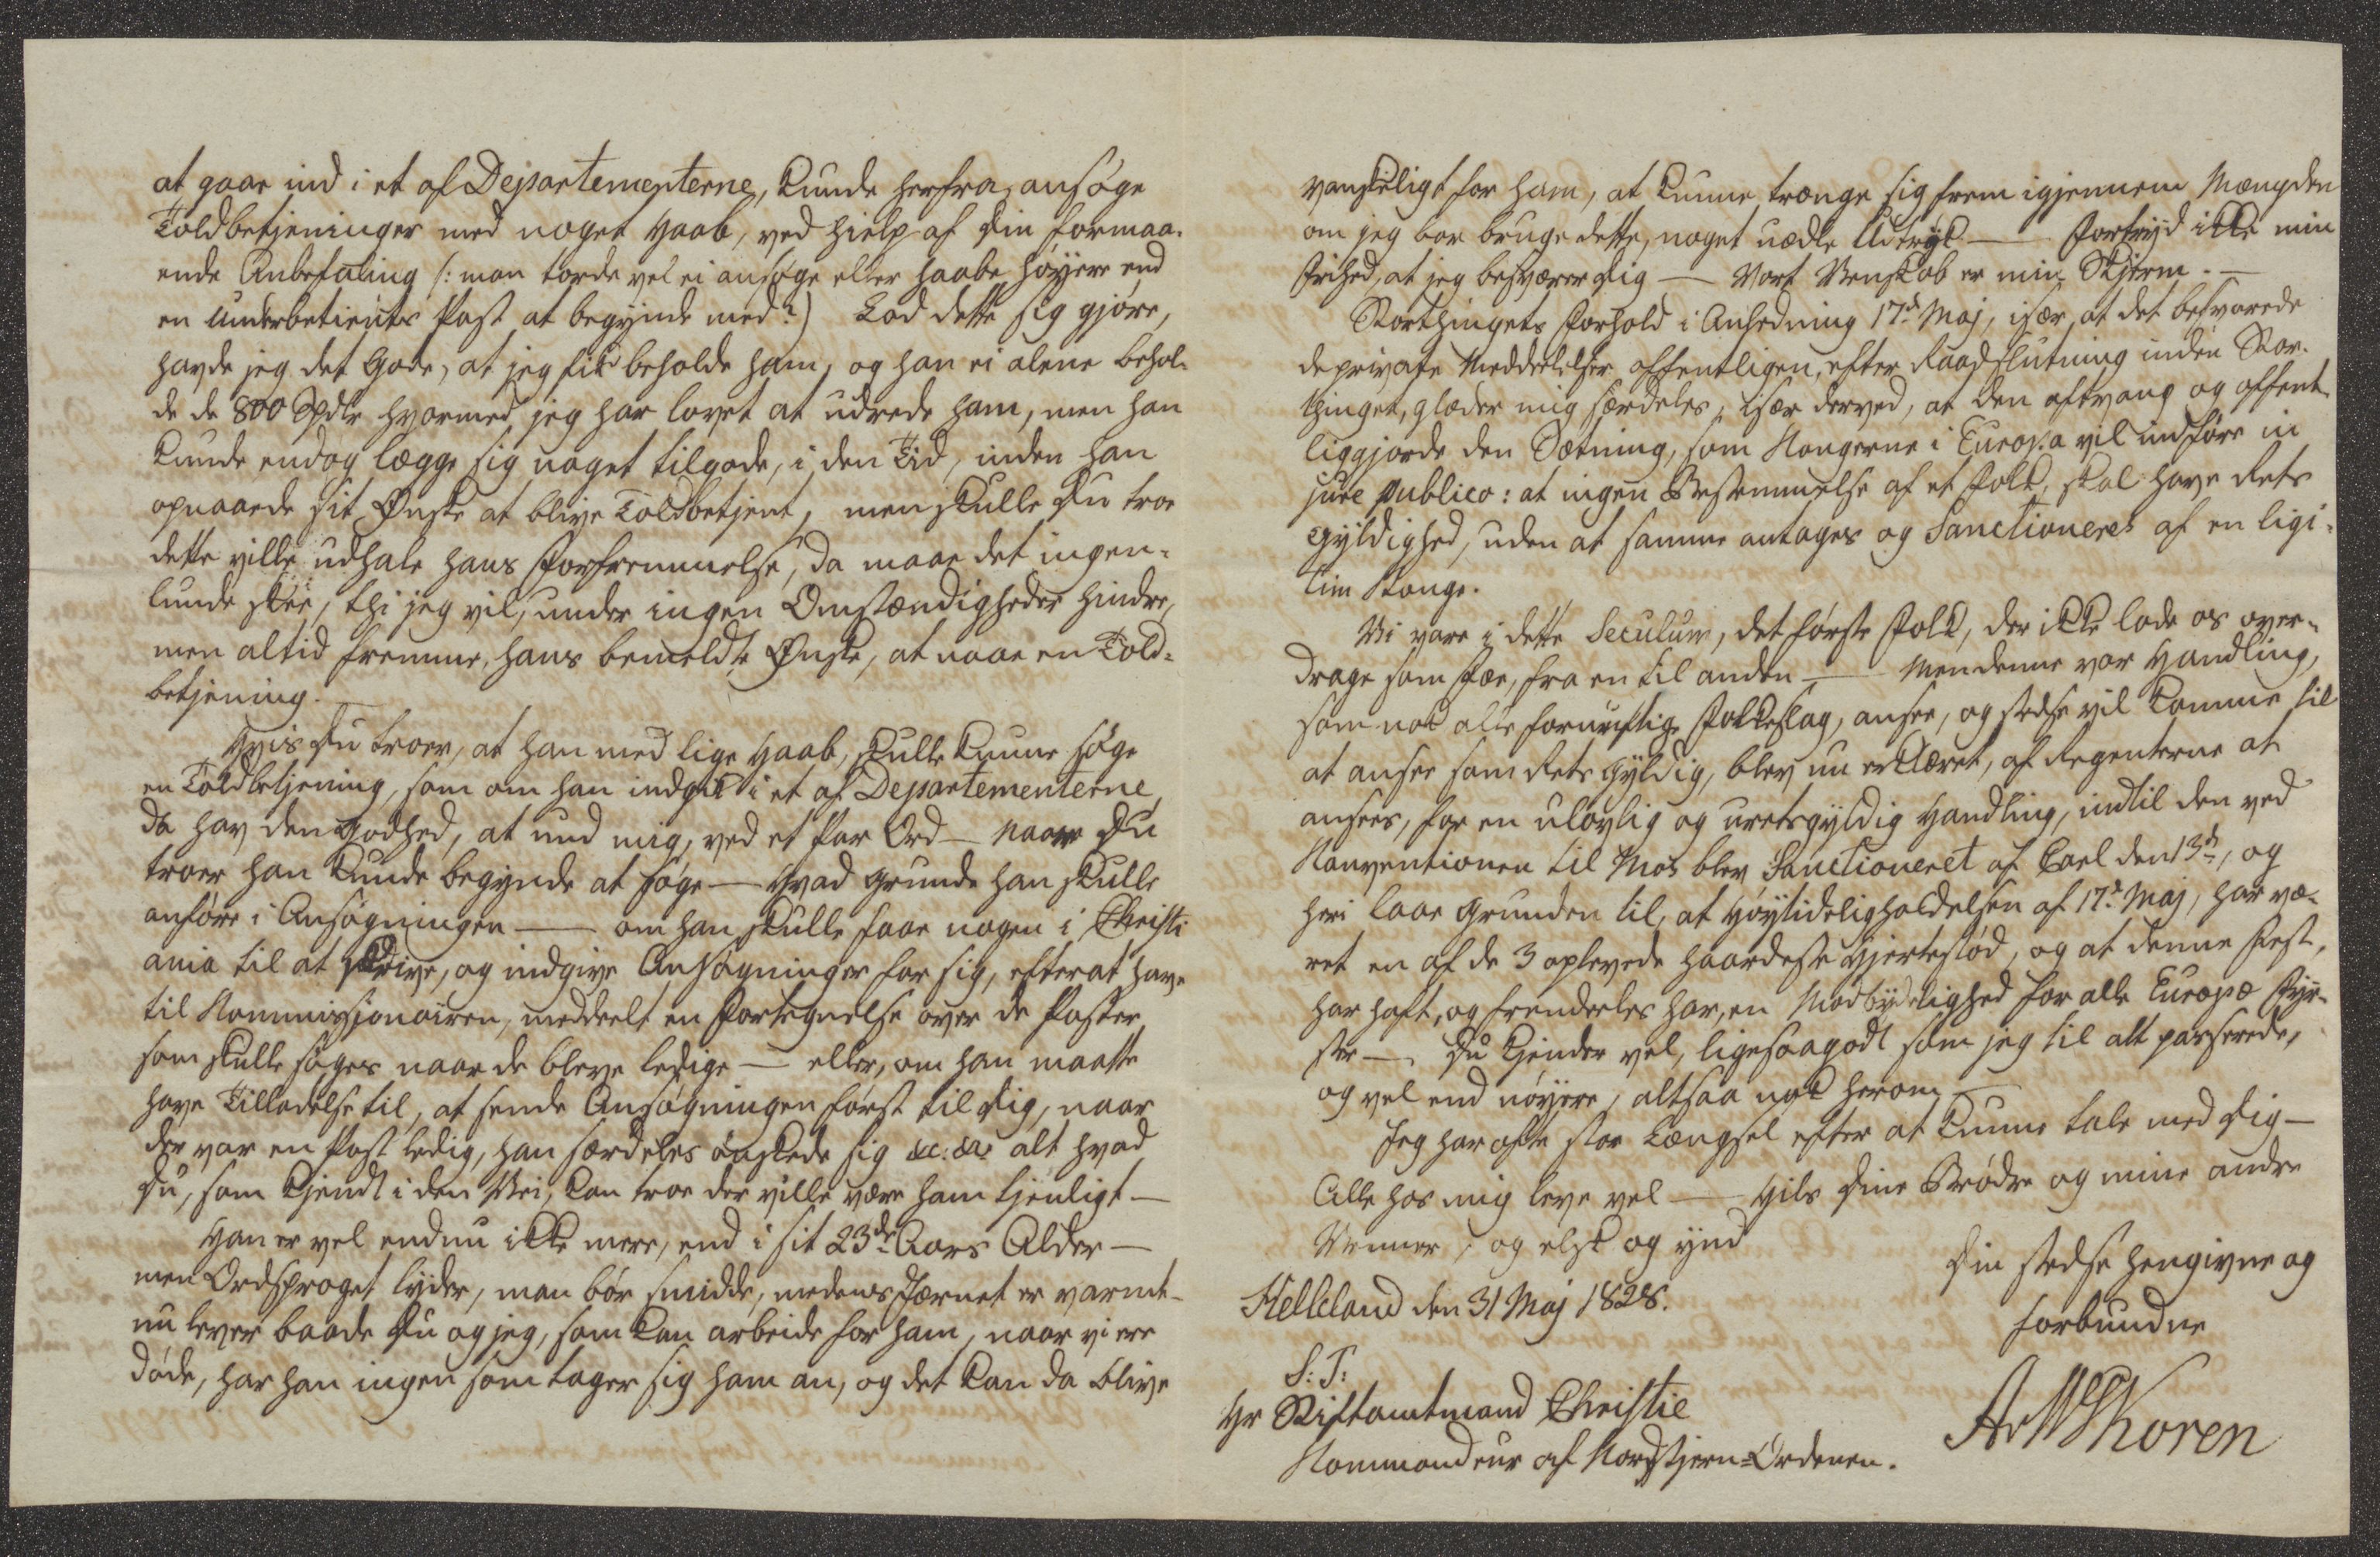 at gaae ind i et af Departementerne, kunde herfra, ansøge
Toldbetjeninger med noget Haab, ved Hielp af Din formaa-
ende Anbefaling /: man torde vel ei ansøge eller haabe høyere end
en Underbetients Post at begynde med?) Lod dette sig gjøre,
havde jeg det Gode, at jeg fik beholde ham, og han ei alene behol-
de de 800 Spdlr hvormed jeg har lovet at udrede ham, men han
kunde endog lægge sig noget tilgode, i den Tid, inden han
opnaaede sit Ønske at blive Toldbetjent, men skulle Du troe
dette ville udhale hans Forfremmelse, da maae det ingen-
lunde skee, thi jeg vil, under ingen Omstændigheder hindre,
men altid fremme, hans bemeldte Ønske, at naae en Told-
betjening.
Hvis Du troer, at han med lige Haab, skulle kunne søge
en Toldbetjening, som om han indgik i et af Departementerne,
da hav den Godhed, at und mig, ved et Par Ord — naar Du
troer han kunde begynde at søge — Hvad Grunde han skulle
anføre i Ansøgningen — om han skulle faae nogen i Christi
ania til at skrive, og indgive Ansøgninger for sig, efterat have
til Kommissionairen, meddeelt en Fortegnelse over de Poster
som skulle søges naar de bleve ledige — eller, om han maatte
have Tilladelse til, at sende Ansøgningen først til Dig, naar
der var en Post ledig, han særdeles ønskede sig &c: &c: alt hvad
Du, som kjendt i den Vei, kan troe der ville være ham tjenligt —
Han er vel endnu ikke mere, end i sit 23de Aars Alder —
men Ordsproget lyder, man bør smidde, medens Jærnet er varmt —
nu lever baade Du og jeg, som kan arbeide for ham, naar vi ere
døde, har han ingen som tager sig ham an, og det kan da blive
vanskeligt for ham, at kunne trænge sig frem igjennem Mængden
om jeg bør bruge dette, noget uædle Udtryk — Fortryd ikke min
Frihed, at jeg besværer Dig — Vort Venskab er min Skjerm. —
Storthingets Forhold i Anledning 17de Maj, især at det besvarede
de private Meddelelser offentligen, efter Raadslutning inden Stor-
thinget, glæder mig særdeles, især derved, at den aftvang og offent-
liggjorde den Sætning, som Kongerne i Europa vil indføre in
jure publico: at ingen Bestemmelse af et Folk, skal have Rets
Gyldighed, uden at samme antages og Sanctioneres af en ligi-
tim Konge.
Vi vare i dette Seculum, det første Folk, der ikke lode os over-
drage som Fæe, fra en til anden — Men denne vor Handling,
som nok alle fornuftige Folkeslag, ansee, og stedse vil komme til
at ansee som Rets Gyldig, blev nu erklæret, af Regenterne at
ansees, for en ulovlig og uretsgyldig Handling, indtil den ved
Konventionen til Mos blev Sanctioneret af Carl den 13de, og
heri laae Grunden til, at Høytideligholdelsen af 17de Maj, har væ-
ret en af de 3 oplevede haardeste Hjertestød, og at denne Fest,
har haft, og fremdeles har, en Modbydelighed for alle Europæ Fyr-
ster — Du kjender vel, ligesaagodt som jeg til alt passerede,
og vel end nøyere, altsaa nok herom —
Jeg har ofte stor Længsel efter at kunne tale med Dig —
Alle hos mig leve vel — Hils Dine Brødre og mine andre
Venner, og elsk og ynd
Din stedse hengivne og
forbundne
Helleland den 31 Maj 1828.
S: T:
Hr Stiftamtmand Christie
Kommandeur af Nordstjern-Ordenen.
Koren